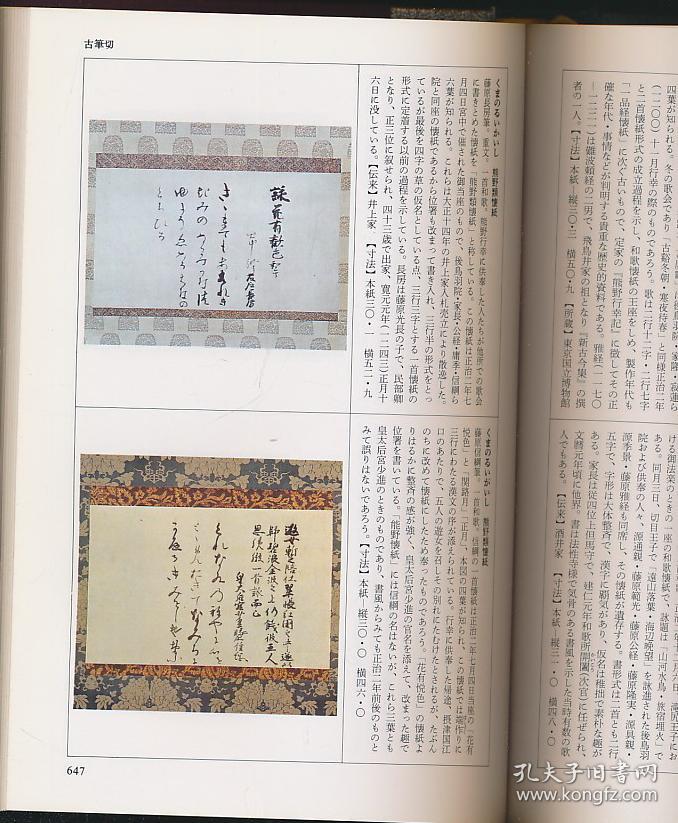 古筆切
くまのるいかいし　熊野類懐紙
藤原長房筆。重文。一首和歌。熊野行幸に供奉した人たちが他所での歌会
に書きとめた懐紙を「熊野類懐紙」と称している。この懐紙は正治二年七
月四日宮中で催された御当座のもので、後鳥羽院・家長・公経・庸季・信綱ら
六葉が知られる。これらは大正十四年の井上家入札売立により散逸した。
院と同座の懐紙であるから位署も改まって書き入れ、三行半の形式をとっ
ているが最後を四字の草の仮名としている点、三行三字とする一首懐紙の
形式に定着する以前の過程を示している。長房は藤原光長の子で、民部卿
となり、正三位に叙せられ、四十三歳で出家、寛元元年(一二四三)正月十
六日に没している。【伝来】井上家　【寸法】本紙三〇・一　横五二・九
くまのるいかいし　熊野類懐紙
藤原信綱筆。一首和歌。信綱の一首懐紙は正治二年七月四日当座の「花有
悦色」と「関路月」「正月」、本図の四葉が知られ、この懐紙では端作りに
三行にわたる漢文の序が添えられている。行幸に供奉した帰途、摂津国江
口のあたりで、五人の遊女を召しその別れにたむけたとされるが、たぶん
のちに改めて懐紙にしたため奉ったものであろう。「花有悦色」の懐紙よ
りはるかに整斉の感が強く、皇太后宮少進の官名を添えて、改まった趣で
位署を書いている。「熊野懐紙」には信綱の名はないが、これら三葉とも
皇太后宮少進のときのものであり、書風からみても正治二年前後のものと
みて誤りはないであろう。【寸法】本紙　縦三〇・〇　横四六・〇
647
四葉が知られる。冬の歌会であり「古谿冬朝・寒夜待春」と同様正治二年
(一二〇〇)十二月行幸の際のものであろう。歌は二行十二字・二行七字
と二首懐紙形式の成立過程を示し、和歌懐紙の王座をしめ、製作年代も
「一品経懐紙」に次ぐ古いもので、定家の『熊野行幸記』に徴してその正
確な年代・事情などが判明する貴重な歴史的資料である。雅経(一一七〇
―一二二一)は難波頼経の二男で、飛鳥井家の祖となり『新古今集』の撰
者の一人。【寸法】本紙　縦三〇・三　横五〇・九　【所蔵】東京国立博物館
ける御法楽のときの一座の和歌懐紙で、詠題は「山河水鳥・旅宿埋火」で
ある。同月三日、切目王子で「遠山落葉・海辺晩望」を詠進された後鳥羽
院および供奉の人々、源通親・藤原範光・藤原公経・藤原隆実・源具親・
源季景・藤原雅経も同席し、その懐紙が遺存する。書形式は二首とも二行
五字で、字形は大体整斉で、漢字に覇気があり、仮名は稚拙で素朴な趣が
ある。家長は従四位上但馬守で、建仁元年和歌所開闔(次官)に任ぜられ、
文暦元年頃に他界。書は法性寺様で気骨のある書風を示した当時有数の歌
人でもある。【伝来】酒井家　【寸法】本紙　縦三一・〇　横四八・〇
孔夫子旧书网
kongfz.com